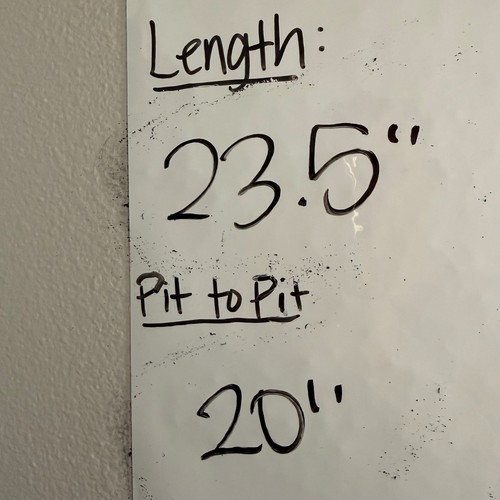 Length:
23.5"
Pit to Pit
20"